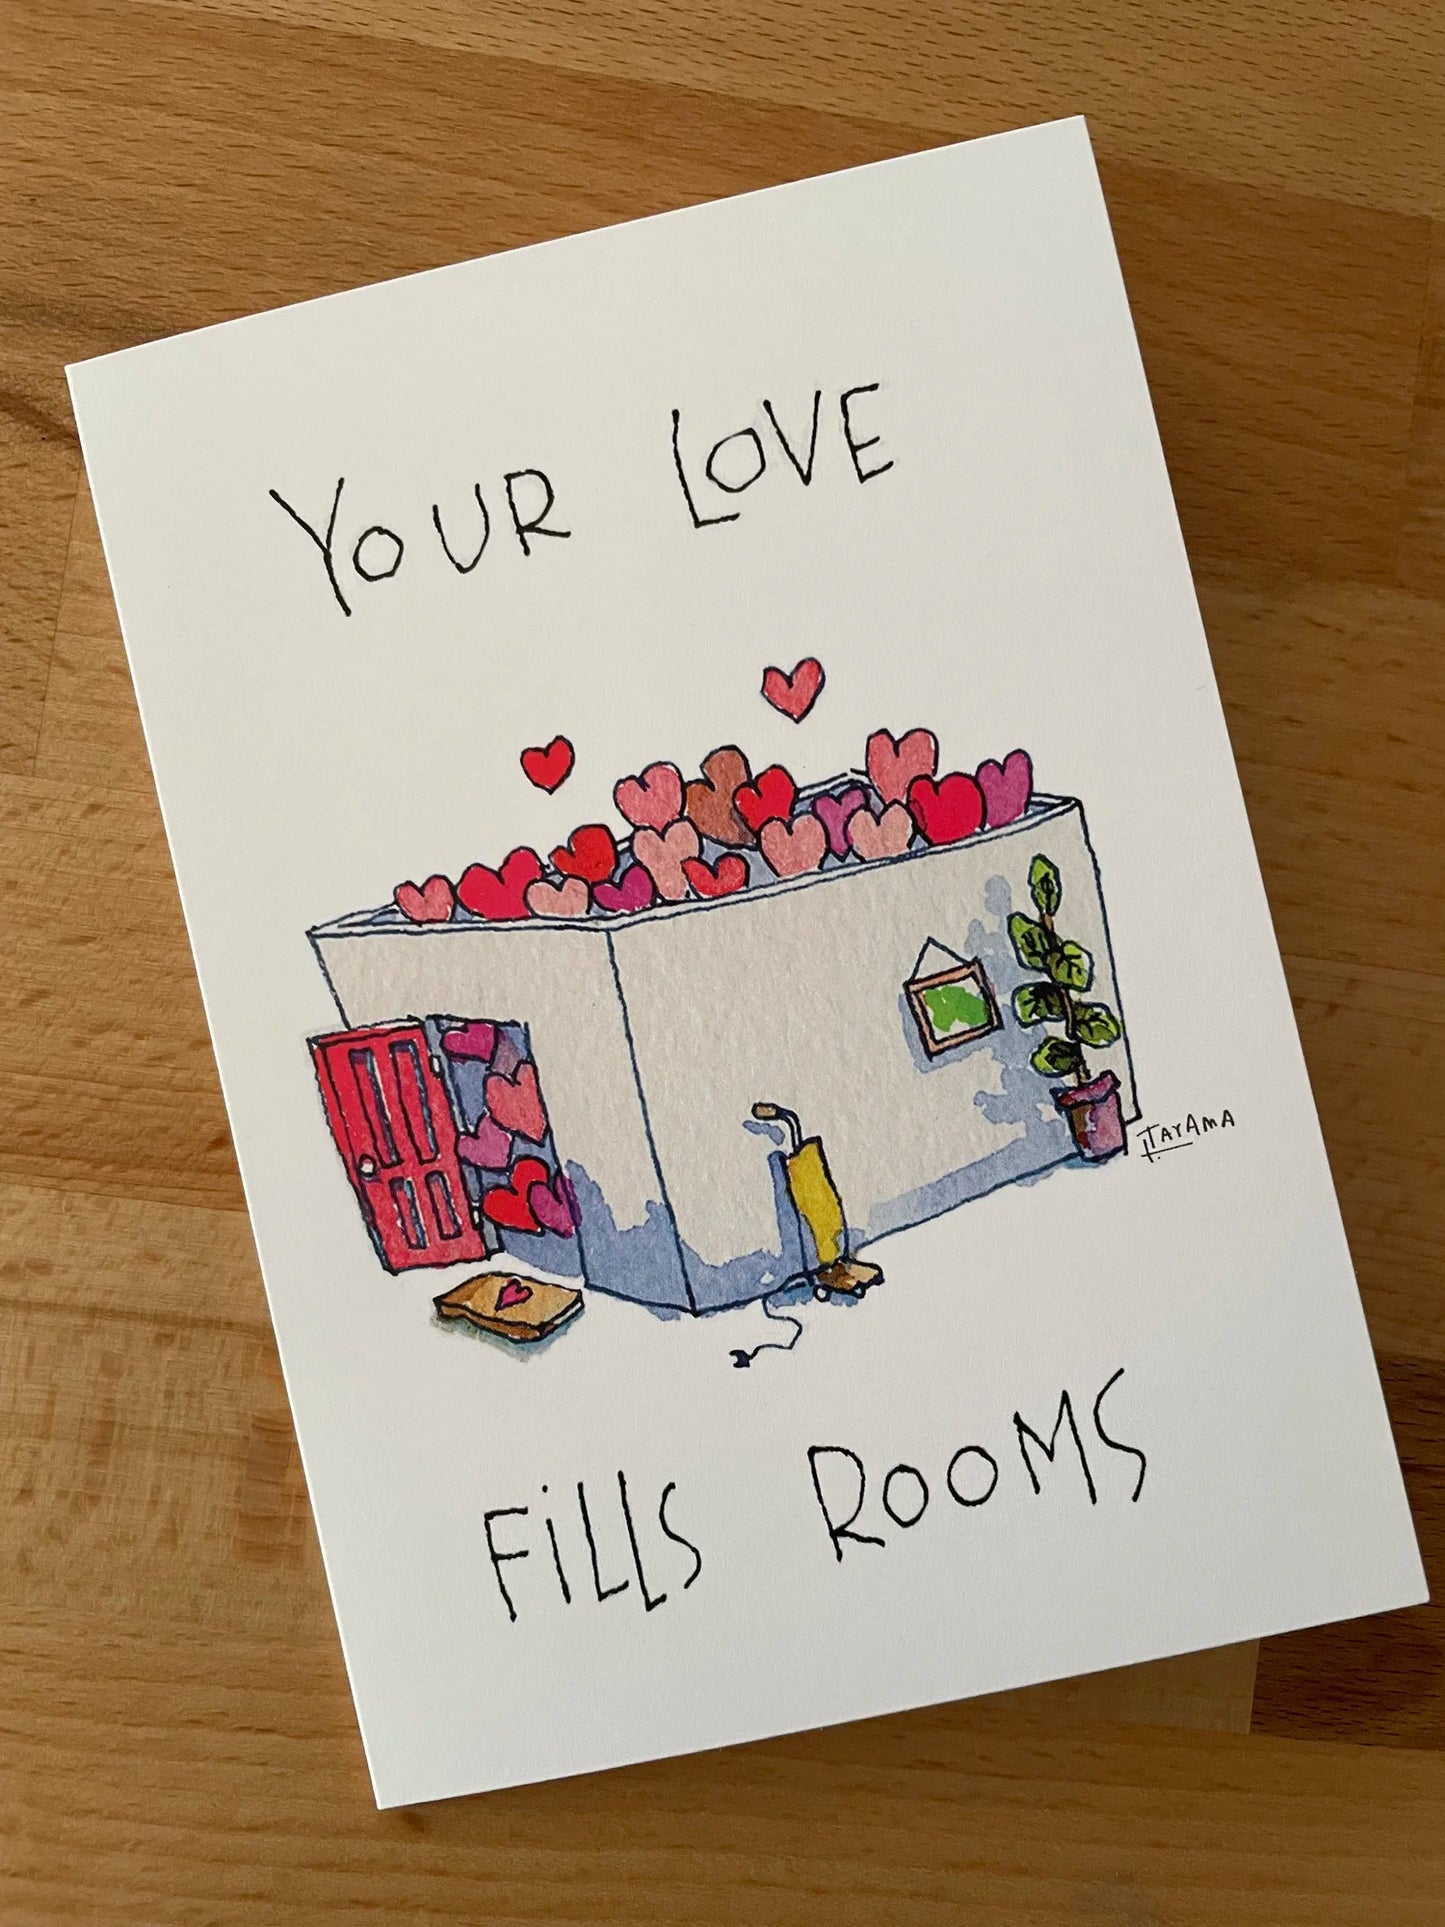 YOUR LOVE
TAYAMA
FiLLS ROOMS